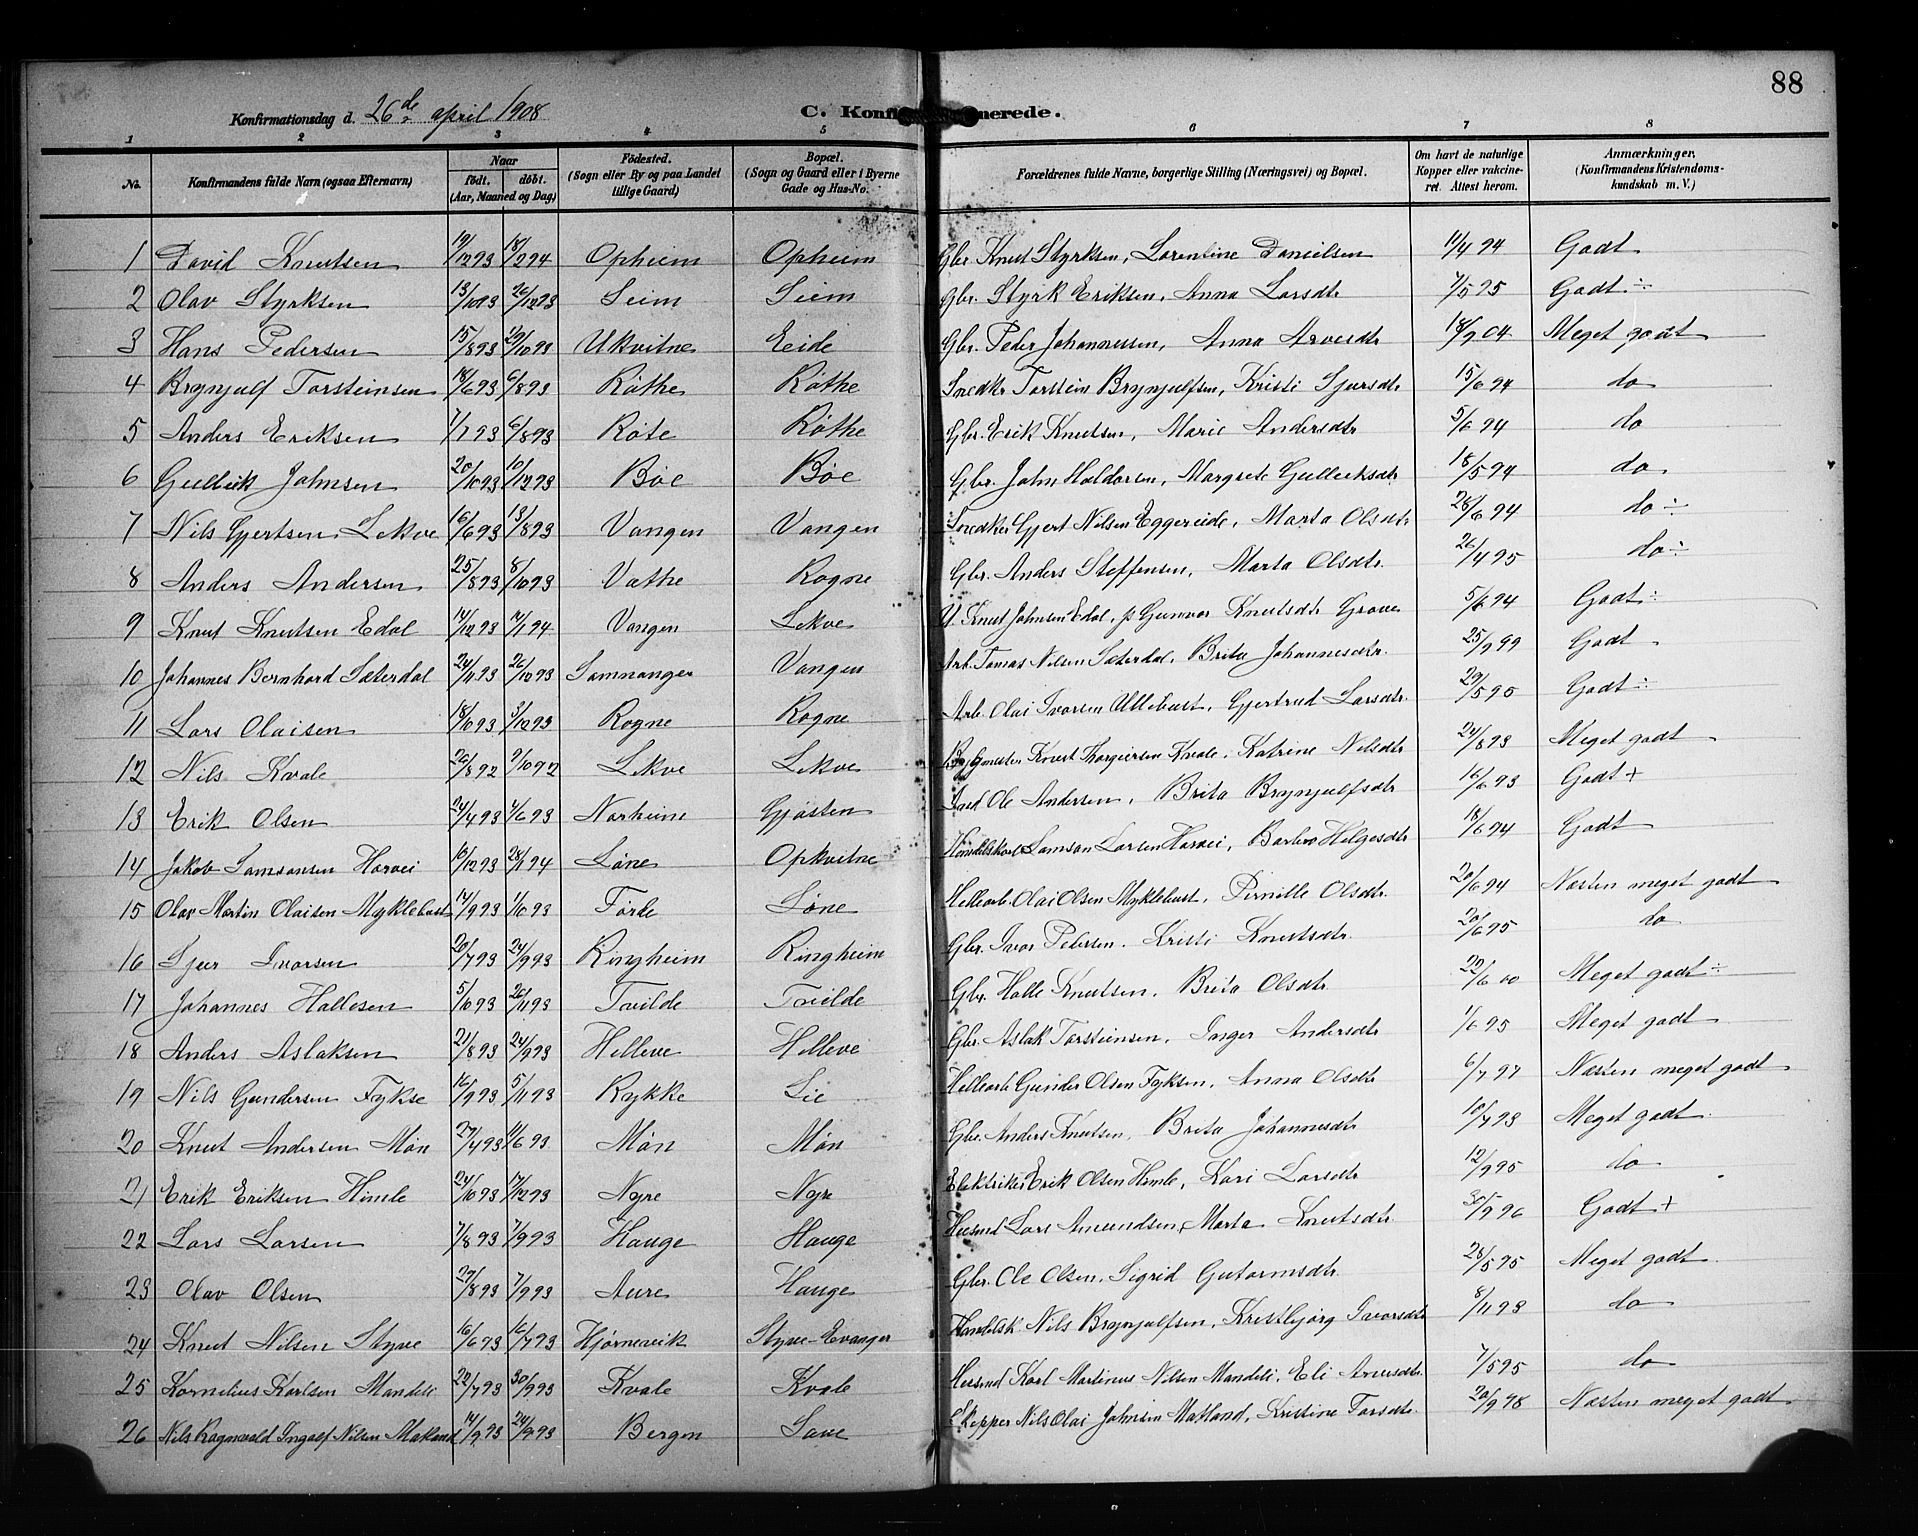 88
Konfirmationsdag d. 26de april 1908
C. Konf nerede.
1 2 3 4 5 6 7 8
No. Konfirmandens fulde Navn (ogsaa Efternavn) Naar født. døbt. (Aar, Maaned og Dag) Fødested. (Sogn eller By og paa Landet tillige Gaard) Bopæl. (Sogn og Gaard eller i Byerne Gade og Hus-No. Forældrenes fulde Navne, borgerlige Stilling (Næringsvei) og Bopæl. Om havt de naturlige Kopper eller vakcineret. Attest herom. Anmærkninger. (Konfirmandens Kristendomskundskab m. V.)
1 David Knutsen 19/12 93 18/2 94 Opheim Opheim Gbr. Knut Styrksen, Lorentine Danielsen 11/4 94 Godt
2 Olav Styrksen 13/10 93 26/12 93 Seim Seim Gbr. Styrk Eriksen, Anna Larsdtr 7/5 95 Godt ÷
3 Hans Pedersen 15/8 93 29/10 93 Ukvitne Eide Gbr. Peder Johannessen, Anna Arvesdtr 14/9 04 Meget godt
4 Brynjulf Torsteinsen 18/6 93 6/8 93 Røthe Røthe Snedkr Torstein Brynjulfsen, Kristi Sjursdtr 15/6 94 do
5 Anders Eriksen 1/7 93 6/8 93 Røte Røthe Gbr. Erik Knutsen, Marie Andersdtr 5/6 94 do
6 Gulleik Johnsen 20/10 93 10/12 93 Bøe Bøe Gbr. John Haldorsen, Margrete Gulleiksdtr 18/5 94 do
7 Nils Gjertsen Lekve 16/6 93 13/8 93 Vangen Vangen Snedker Gjert Nilsen Eggereide, Marta Olsdtr 28/6 94 do ÷
8 Anders Andersen 25/8 93 8/10 93 Vathe Rogne Gbr. Anders Steffensen, Marta Olsdtr 26/4 95 do ÷
9 Knut Knutsen Edal 14/12 93 14/1 94 Vangen Lekve U. Knut Johnsen Edal, p Gunvor Knutsdtr Grove 5/6 94 Godt ÷
10 Johannes Bernhard Sæterdal 24/9 93 26/10 93 Samnanger Vangen Arb. Tomas Nilsen Sæterdal, Brita Johannesdtr. 25/9 99 Godt
11 Lars Olaisen 18/10 93 3/12 93 Rogne Rogne Arb. Olai Ivarsen Ullebust, Gjertrud Larsdtr. 29/5 95 Godt ÷
12 Nils Kvale 26/8 92 9/10 92 Lekve Lekve Knut Thorgiersen Kvale, Katrine Nilsdtr 24/8 93 Meget godt
13 Erik Olsen 24/4 93 4/6 93 Norheim Gjøsten Ole Andersen, Brita Brynjulfsdtr 16/6 93 Godt +
14 Jakob Samsonsen Horvei 16/12 93 28/1 94 Løne Opkvitne Handelskarl Samson Larsen Horvei, Barbro Helgesdtr 18/6 94 Godt
15 Olav Martin Olaisen Myklebust 14/9 93 1/10 93 Førde Løne Hellearb. Olai Olsen Myklebust, Pernille Olsdtr. 20/6 94 Næsten meget godt
16 Sjur Ivarsen 20/7 93 24/9 93 Ringheim Ringheim Gbr. Ivar Pedersen. Kristi Knutsdtr. 20/6 95 do
17 Johannes Hallesen 5/10 93 26/11 93 Tvilde Tvilde Gbr. Halle Knutsen, Brita Olsdtr 22/6 00 Meget godt ÷
18 Anders Aslaksen 21/8 93 24/9 93 Helleve Helleve Gbr. Aslak Torsteinsen, Inger Andersdtr 1/6 95 Meget godt
19 Nils Gundersen Fykse 16/9 93 5/11 93 Rykke Lie Hellearb Gunder Olsen Fyksen, Anna Olsdtr 6/7 97 Næsten meget godt
20 Knut Andersen Møn 27/4 93 11/6 93 Møn Møn Gbr. Anders Knutsen, Brita Johannesdtr 10/7 93 Meget godt
21 Erik Eriksen Himle 24/10 93 17/12 93 Nyre Nyre Elektriker Erik Olsen Himle, Kari Larsdtr 12/9 95 do
22 Lars Larsen 7/8 93 7/9 93 Hauge Hauge Husmd Lars Amundsen, Marta Knutsdtr. 30/9 96 Godt +
23 Olav Olsen 27/8 93 7/9 93 Aure Hauge Gbr. Ole Olsen. Sigrid Gutormsdtr. 28/5 95 Meget godt
24 Knut Nilsen Styve 16/6 93 16/7 93 Hjørnevik Styve-Evanger Handelsk Nils Brynjulfsen, Kristbjørg Ivarsdtr 8/11 93 do
25 Kornelius Karlsen Mandeli 22/7 93 30/9 93 Kvale Kvale Husmd Karl Martinus Nilsen Mandeli, Eli Anersdtr. 7/5 95 do
26 Nils Ragnvald Ingolf Nilsen Matland 14/9 93 24/9 93 Bergen Save Skipper Nils Olai Johnsen Matland, Kristine Torsdtr. 20/9 98 Næsten meget godt